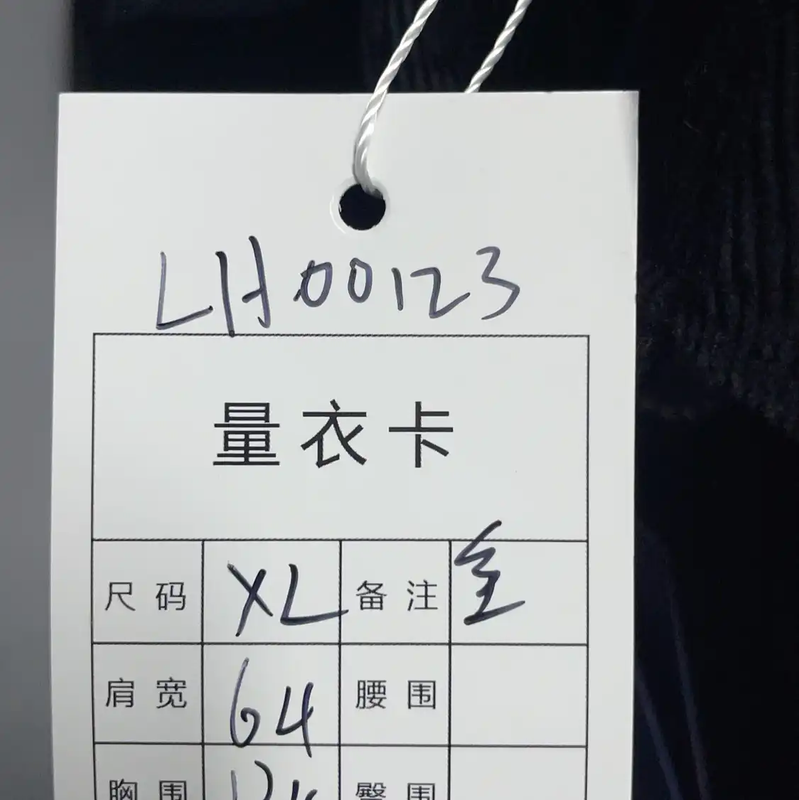 LH00123
量衣卡
尺码 XL 备注 全
肩宽 64 腰围
胸围 臀围